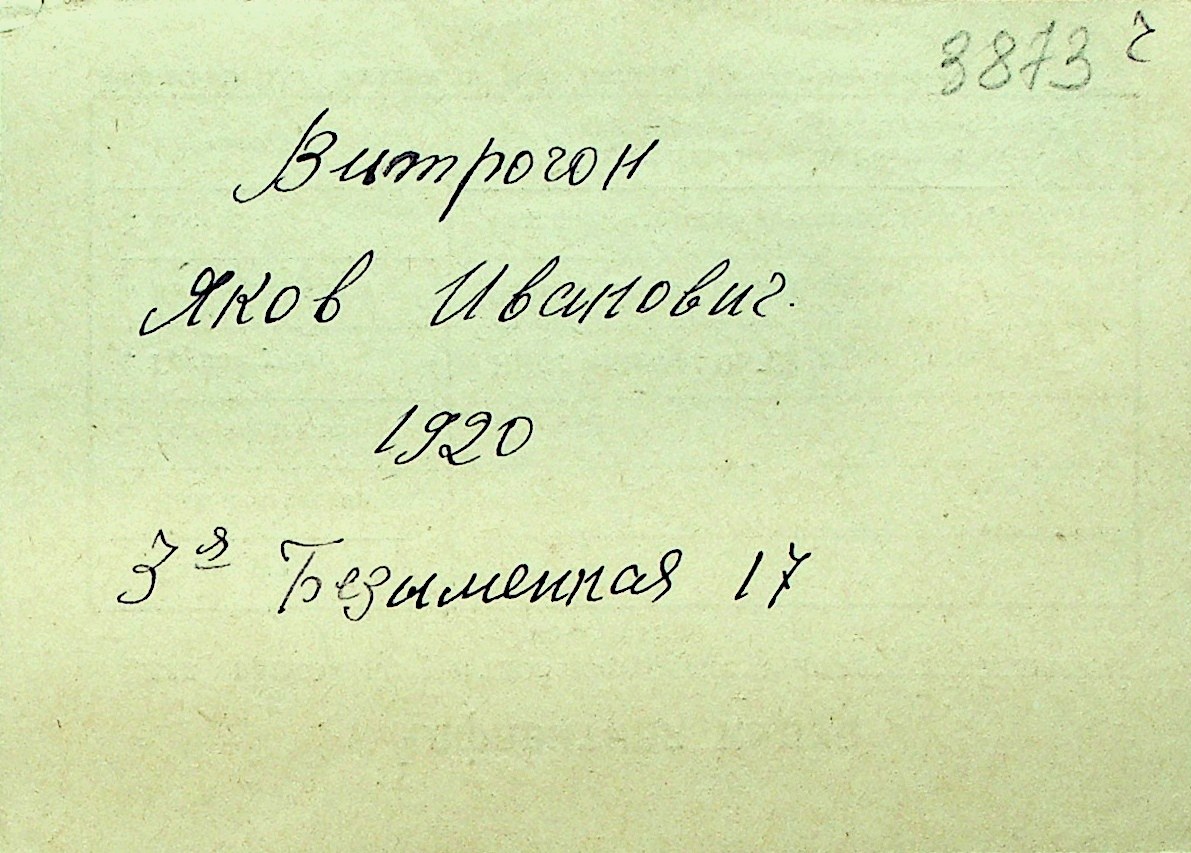 3873 ч
Витрогон
Яков Иванович.
1920
3я Безыменная 17